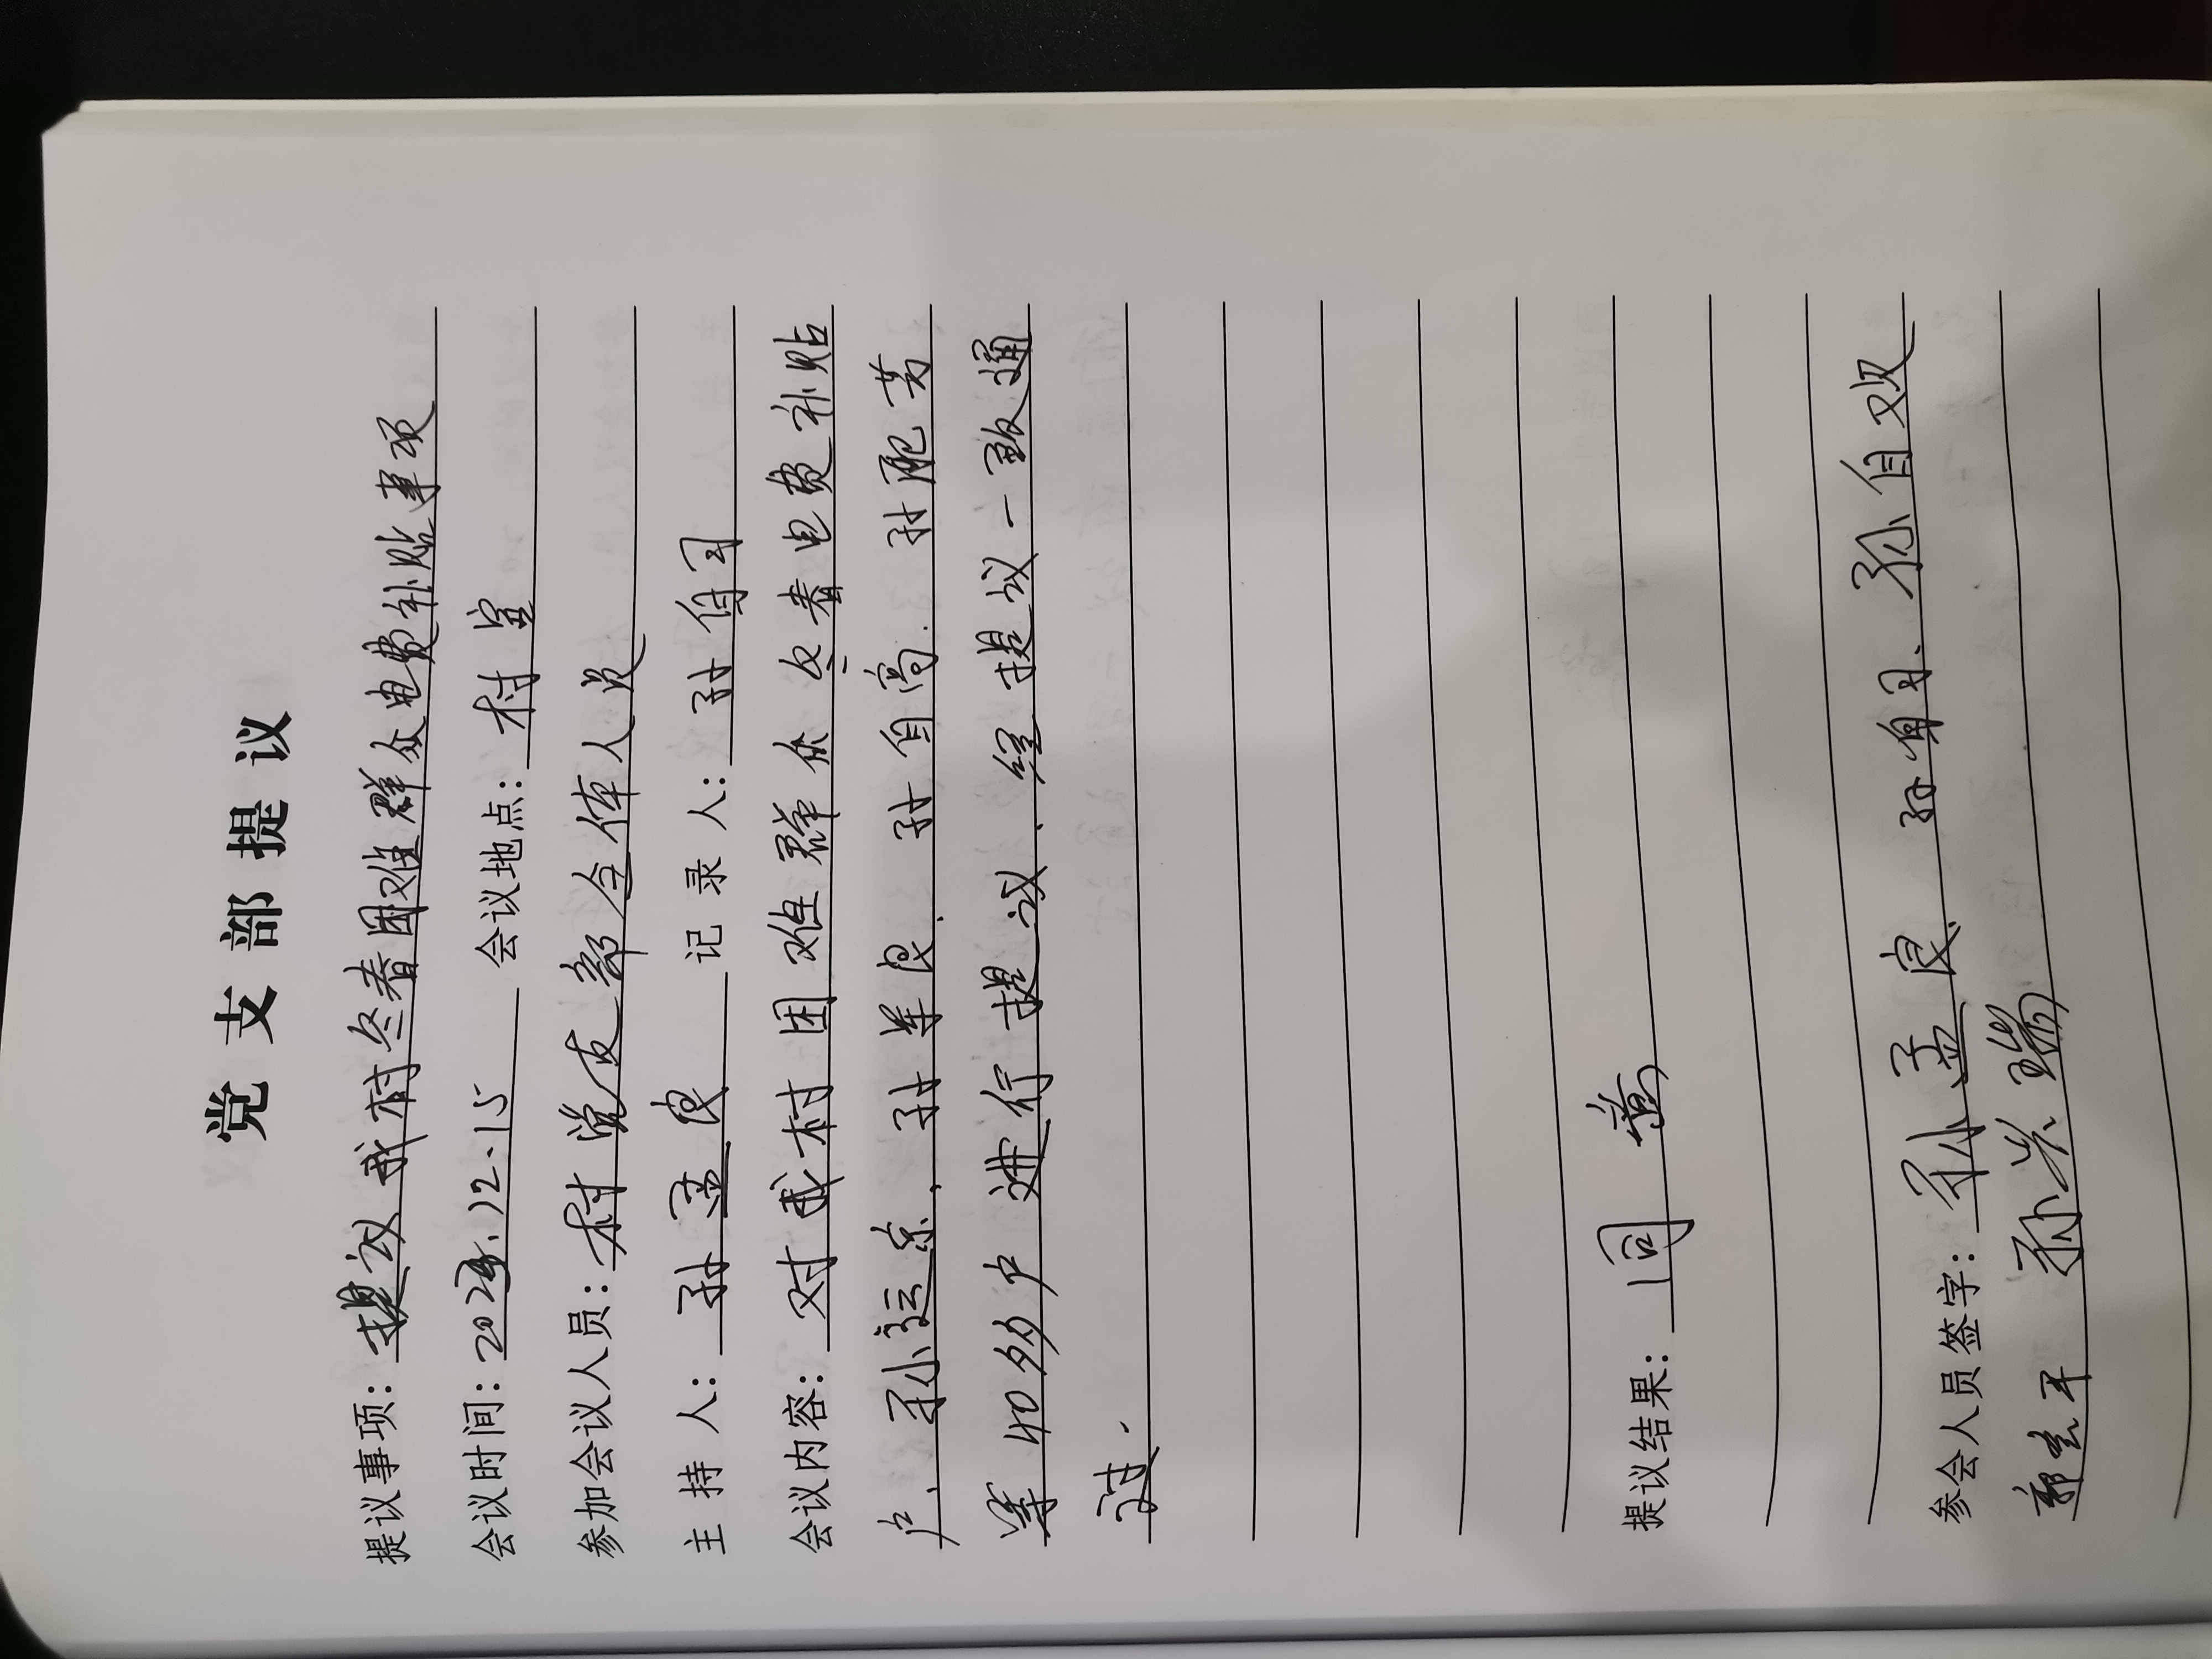 党支部提议
提议事项：提议我村冬春困难群众电费补贴事项
会议时间：2023.12.15 会议地点：村室
参加会议人员：村党支部全体人员
主持人：孙孟良 记录人：孙自
会议内容：对我村困难群众冬春电费补贴
户、孙运京、孙军良、孙自高、孙配芳
等40多户进行提议、经提议一致通
过.
提议结果：同意
参会人员签字：孙孟良、孙自、孙自双
孙兴瑞